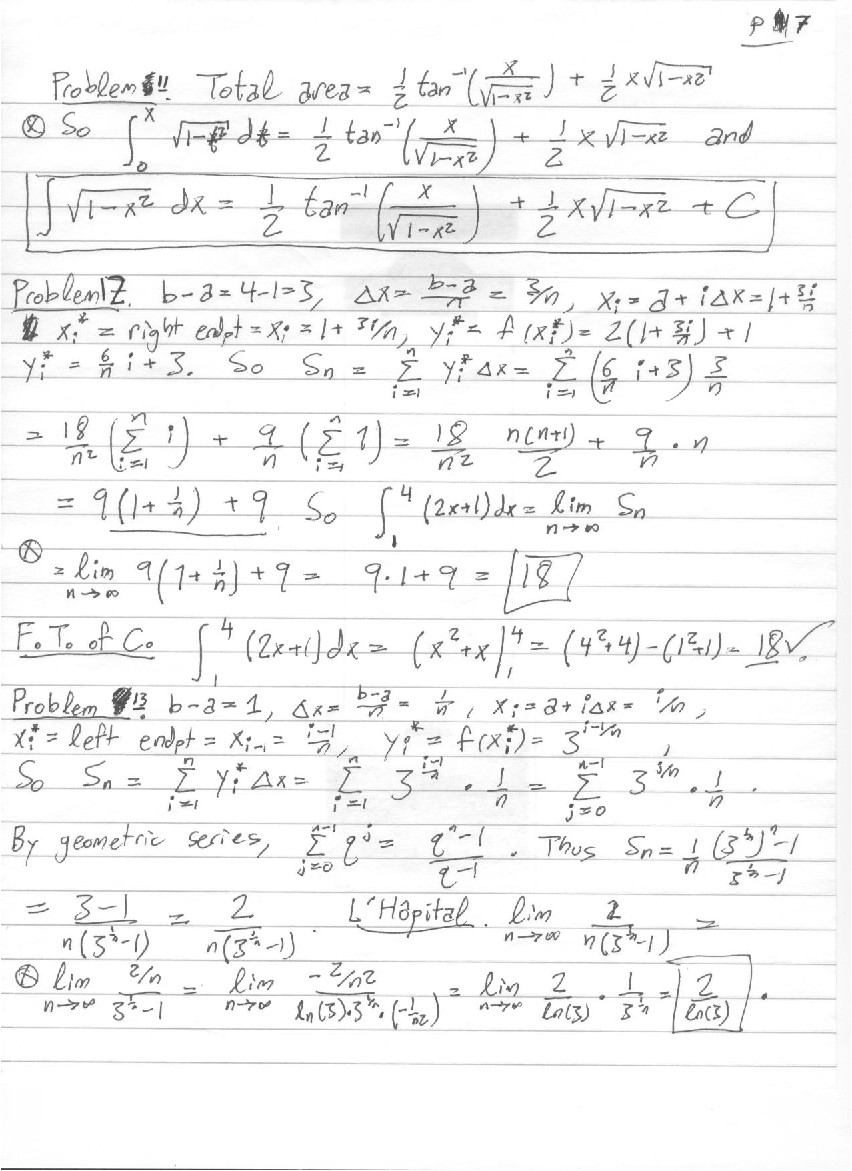 p 7
Problem 11. Total area = 1/2 tan⁻¹(x/√(1-x²)) + 1/2 x√(1-x²)
ⓧ So ∫₀ˣ √(1-t²) dt = 1/2 tan⁻¹(x/√(1-x²)) + 1/2 x√(1-x²) and
∫√(1-x²) dx = 1/2 tan⁻¹(x/√(1-x²)) + 1/2 x√(1-x²) + C
Problem 12. b-a=4-1=3, Δx = (b-a)/n = 3/n, xᵢ = a+iΔx = 1+3i/n
xᵢ* = right endpt = xᵢ = 1+3i/n, yᵢ* = f(xᵢ*) = 2(1+3i/n)+1
yᵢ* = 6/n i+3. So Sn = Σᵢ₌₁ⁿ yᵢ* Δx = Σᵢ₌₁ⁿ (6/n i+3) 3/n
= 18/n² (Σᵢ₌₁ⁿ i) + 9/n (Σᵢ₌₁ⁿ 1) = 18/n² n(n+1)/2 + 9/n · n
= 9(1+1/n) + 9 So ∫₁⁴ (2x+1) dx = lim n→∞ Sn
ⓧ = lim n→∞ 9(1+1/n)+9 = 9·1+9 = 18
F.T. of C. ∫₁⁴ (2x+1) dx = (x²+x|₁⁴ = (4²+4)-(1²+1) = 18✓.
Problem 13. b-a=1, Δx = (b-a)/n = 1/n, xᵢ = a+iΔx = i/n,
xᵢ* = left endpt = xᵢ₋₁ = (i-1)/n, yᵢ* = f(xᵢ*) = 3^(i-1/n),
So Sn = Σᵢ₌₁ⁿ yᵢ* Δx = Σᵢ₌₁ⁿ 3^((i-1)/n) · 1/n = Σⱼ₌₀ⁿ⁻¹ 3^(j/n) · 1/n.
By geometric series, Σⱼ₌₀ⁿ⁻¹ qʲ = (qⁿ-1)/(q-1). Thus Sn = 1/n ((3^(1/n))ⁿ-1)/(3^(1/n)-1)
= (3-1)/(n(3^(1/n)-1)) = 2/(n(3^(1/n)-1)). L'Hôpital. lim n→∞ 2/(n(3^(1/n)-1)) =
ⓧ lim n→∞ (2/n)/(3^(1/n)-1) = lim n→∞ (-2/n²)/(ln(3)·3^(1/n)·(-1/n²)) = lim n→∞ 2/ln(3) · 1/3^(1/n) = 2/ln(3).